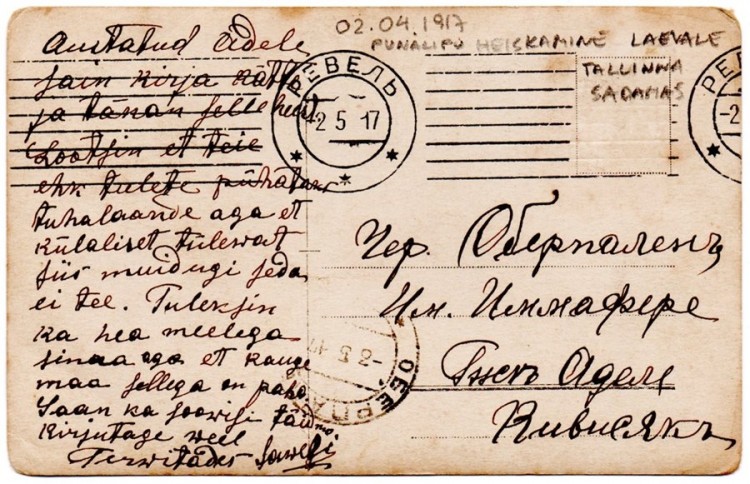 Austatud Adele
Sain kirja kätte
ja tänan selle eest
Lootsin et teie
ehk tulete pühataks
tuhalaande aga et
külaliset tulewat
siis muidugi seda
ei tee. Tuleksin
ka hea meelega
sinna aga et kauge
maa sellega on paha
Saan ka soowisi täita
Kirjutage weel
Terwitades
02.04.1917
PUNALIPU HEISKAMINE LAEVALE
TALLINNA
SADAMAS
РЕВЕЛЬ
-2 5 17
РЕВ
-2
Чер. Оберпаленъ
Им. Иммафере
Г-жѣ Аделе
Кивисякъ
-2 5 17
ОБЕРПА